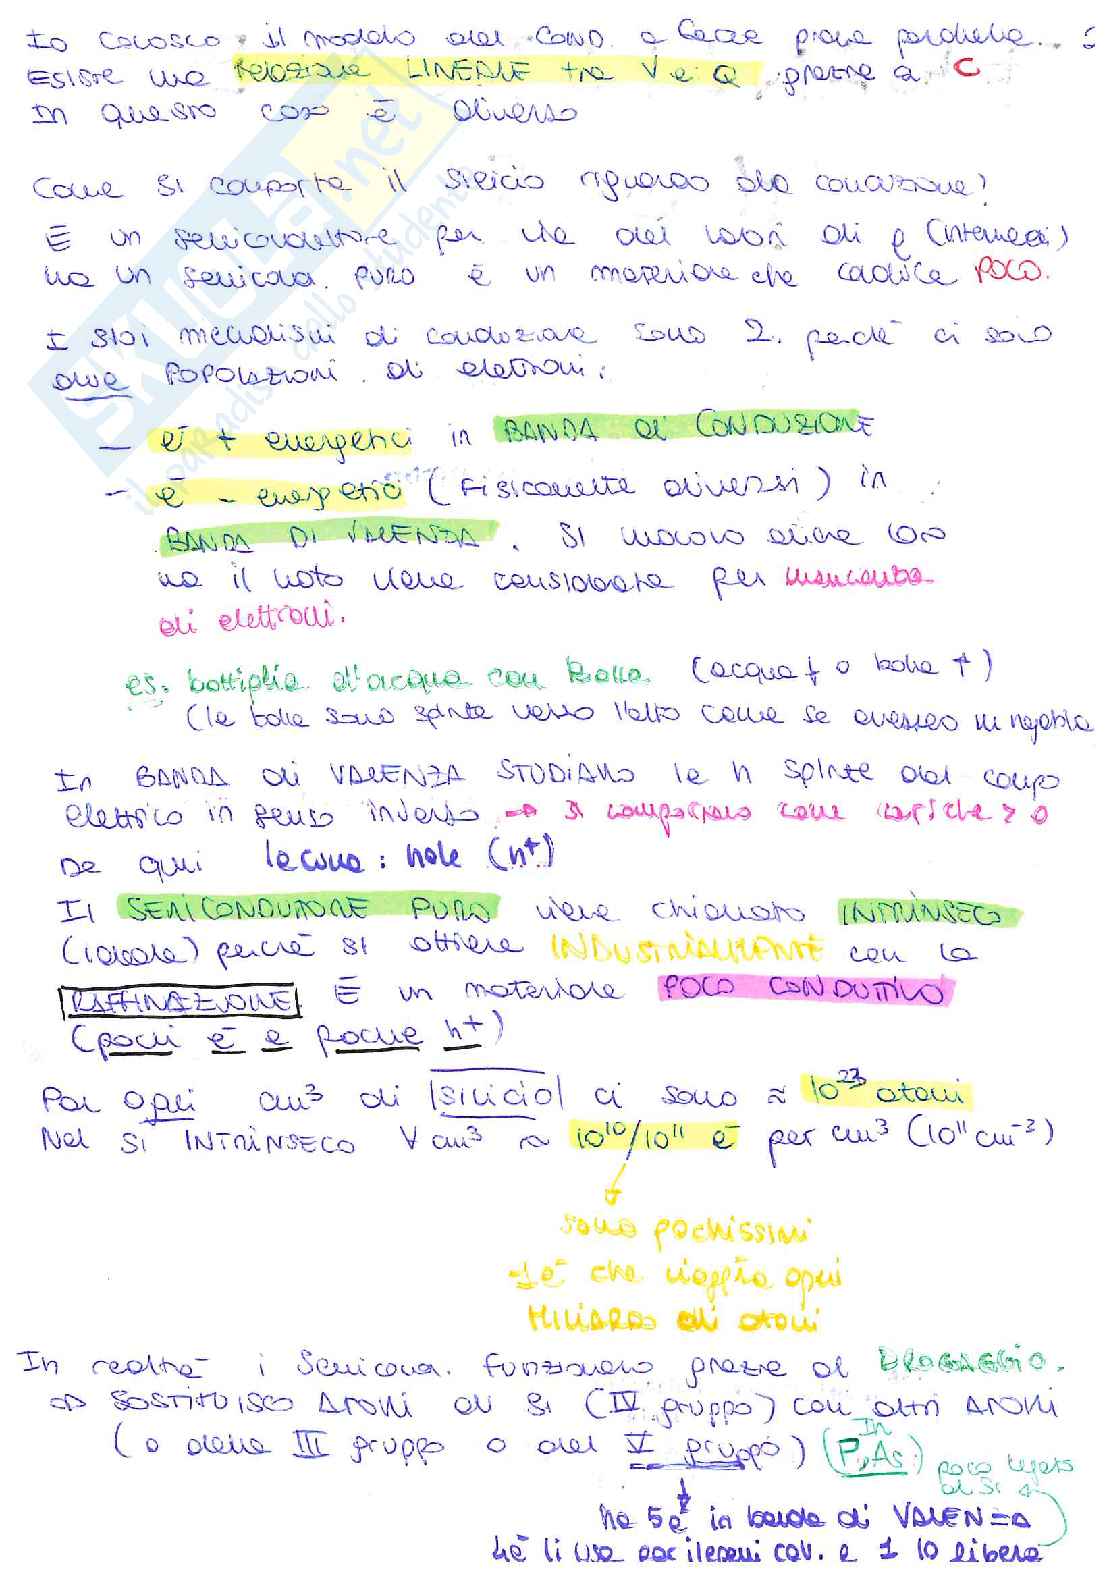 Io conosco il modello del COND. a facce piane parallele.
ESISTE una relazione LINEARE tra V e Q grazie a C
In questo caso è diverso
Come si comporta il silicio riguardo alla conduzione?
È un semiconduttore per via dei valori di ρ (intermedi)
ma un semicond. puro è un materiale che conduce POCO.
I suoi meccanismi di conduzione sono 2. perché ci sono
due POPOLAZIONI di elettroni:
- e⁻ + energetici in BANDA di CONDUZIONE
- e⁻ - energetici (fisicamente diversi) in
BANDA DI VALENZA. Si muovono anche loro
ma il moto viene considerato per mancanza
di elettroni.
es: bottiglia d'acqua con bolla. (acqua ↓ o bolla ↑)
(le bolle sono spinte verso l'alto come se avessero m negativa
In BANDA di VALENZA STUDIAMO le h spinte dal campo
elettrico in senso inverso → si comportano come cariche > 0
Da qui lacuna: hole (h⁺)
Il SEMICONDUTTORE PURO viene chiamato INTRINSECO
(ideale) perché si ottiene INDUSTRIALMENTE con la
RAFFINAZIONE. È un materiale POCO CONDUTTIVO
(pochi e⁻ e poche h⁺)
Per ogni cm³ di |silicio| ci sono ≈ 10²³ atomi
Nel Si INTRINSECO ∀ cm³ ≈ 10¹⁰/10¹¹ e⁻ per cm³ (10¹¹ cm⁻³)
sono pochissimi
1 e⁻ che viaggia ogni
MILIARDO di atomi
In realtà i semicond. funzionano grazie al DROGAGGIO.
⇒ SOSTITUISCO ATOMI di Si (IV gruppo) con altri ATOMI
(o della III gruppo o del V gruppo) (P, As) In
poco legato
al Si
ha 5e⁻ in banda di VALENZA
4e⁻ li usa per i legami cov. e 1 lo libera